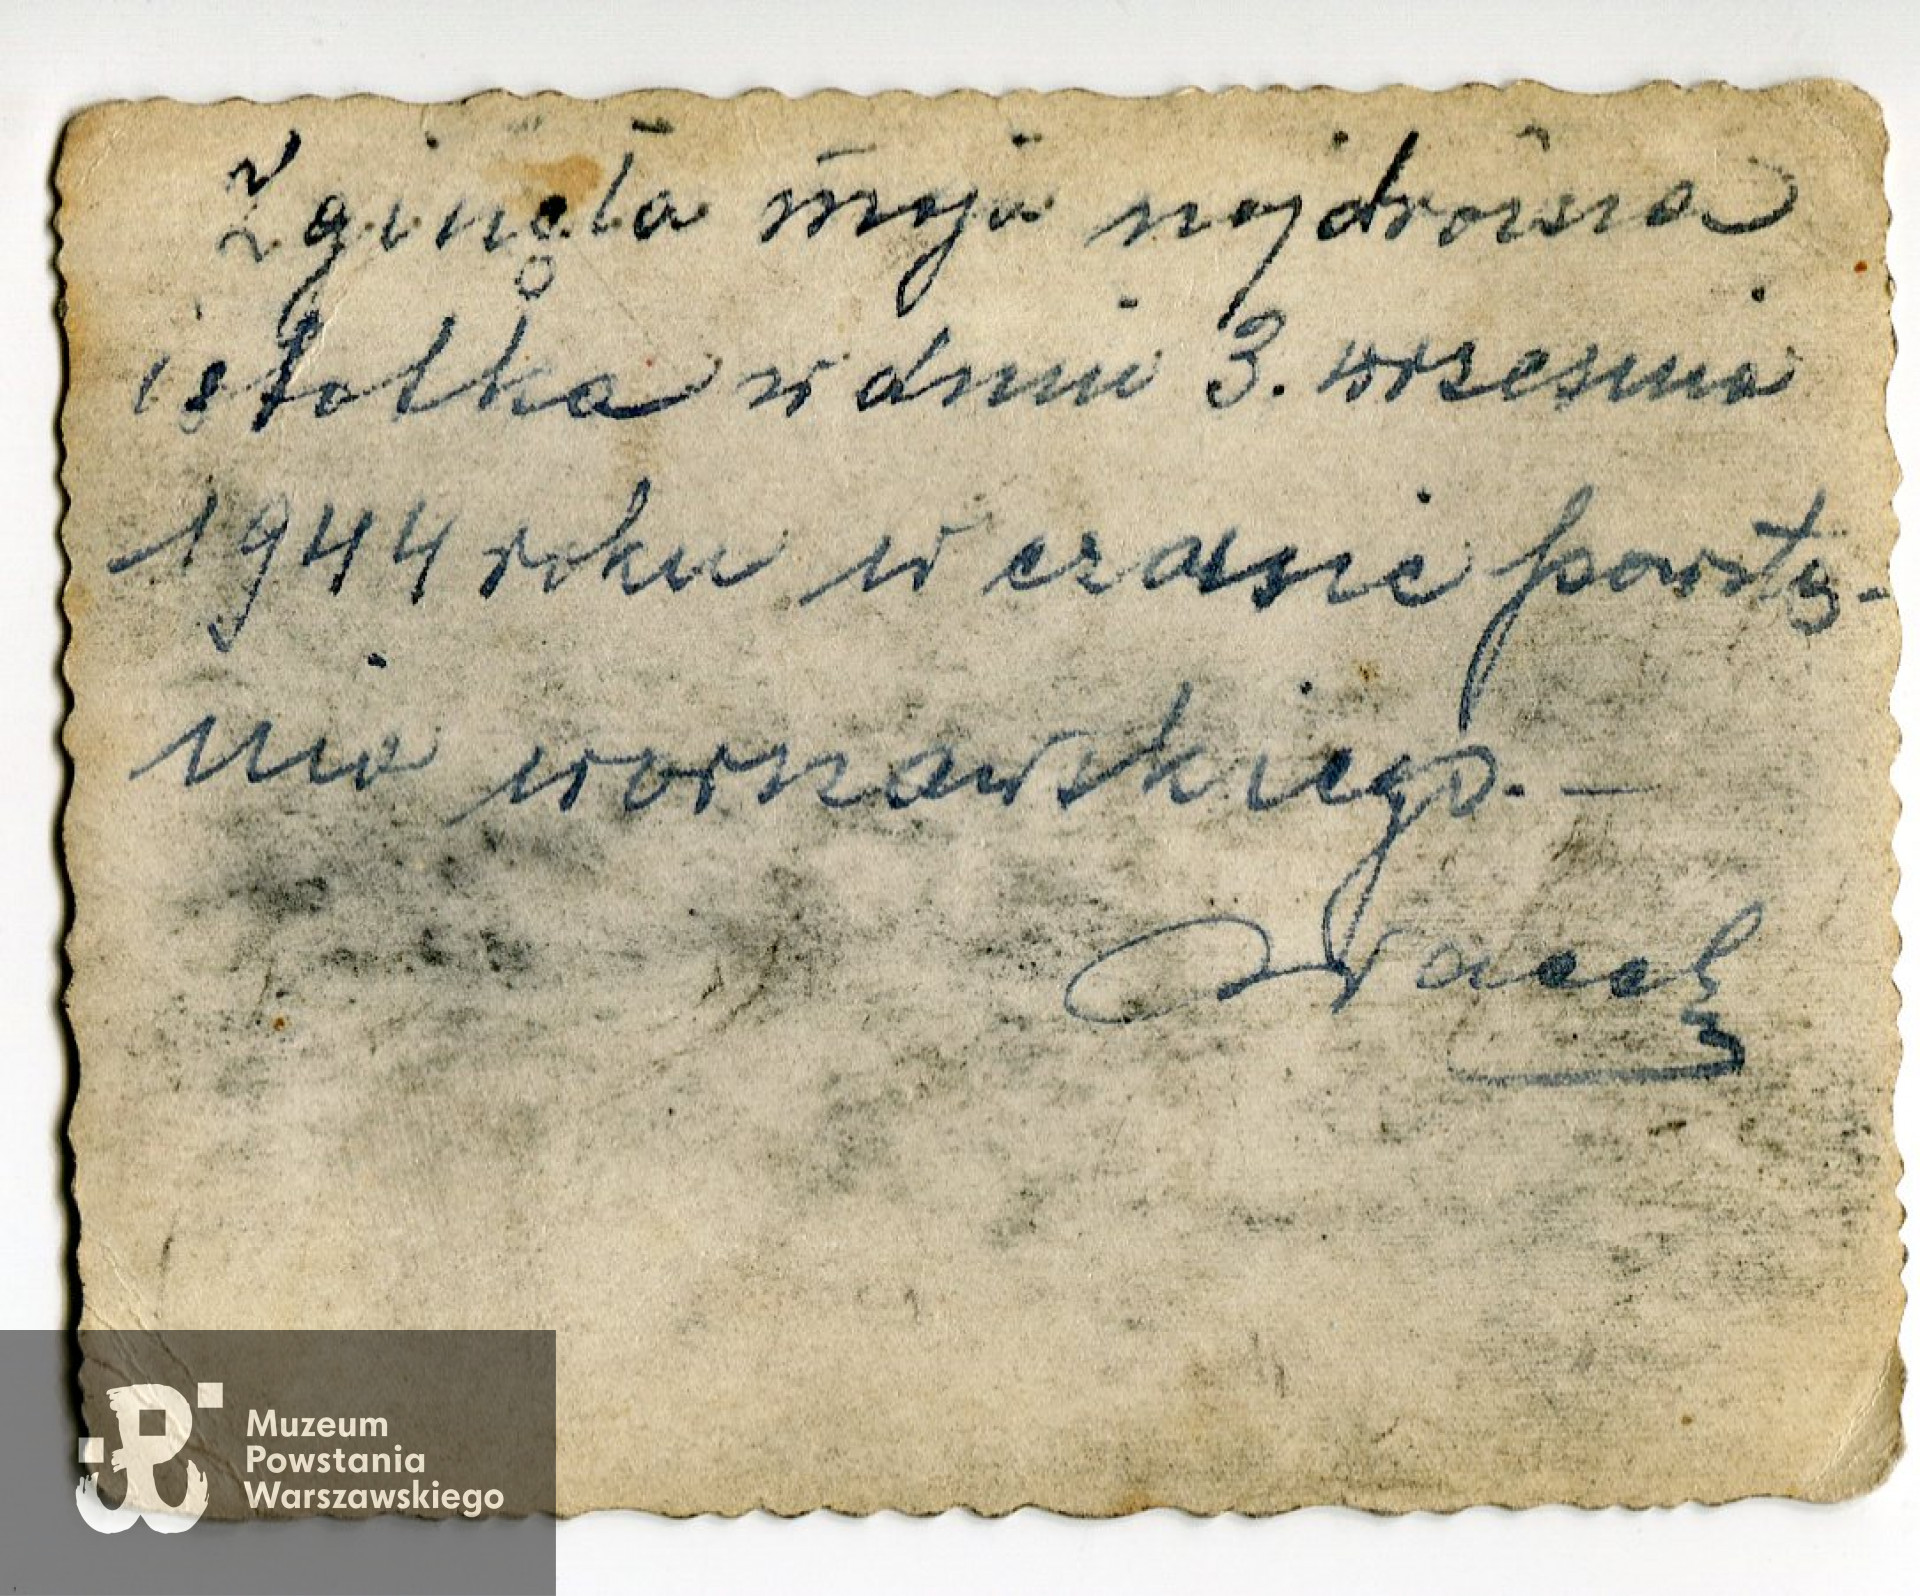 Zginęła moja najdroższa
istotka w dniu 3. września
1944 roku w czasie powsta-
nia warszawskiego. —
Wacek
Muzeum
Powstania
Warszawskiego